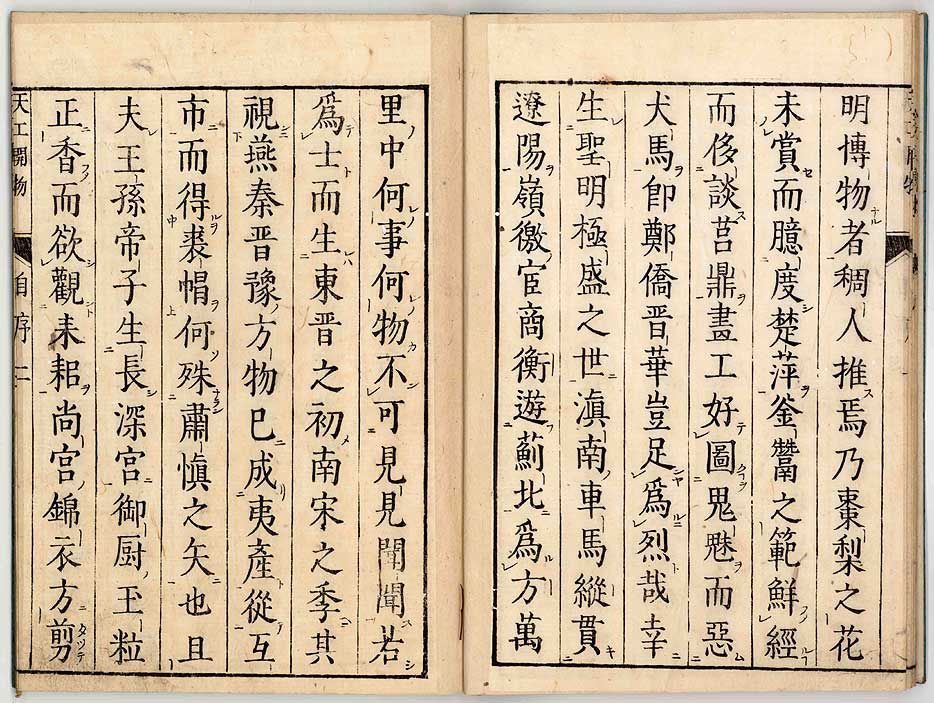 明博物者稠人推焉乃棗梨之花
未賞而臆度楚萍釜鬵之範鮮經
而侈談莒鼎畫工好圖鬼魅而惡
犬馬卽鄭僑晋華豈足爲烈哉幸
生聖明極盛之世滇南車馬縱貫
遼陽嶺徼宦商衡遊薊北爲方萬
里中何事何物不可見見聞聞若
爲士而生東晋之初南宋之季其
視燕秦晋豫方物已成夷產從互
市而得裘帽何殊肅愼之矢也且
夫王孫帝子生長深宮御厨玉粒
正香而欲觀耒耜尚宮錦衣方剪
天工開物 自序 二